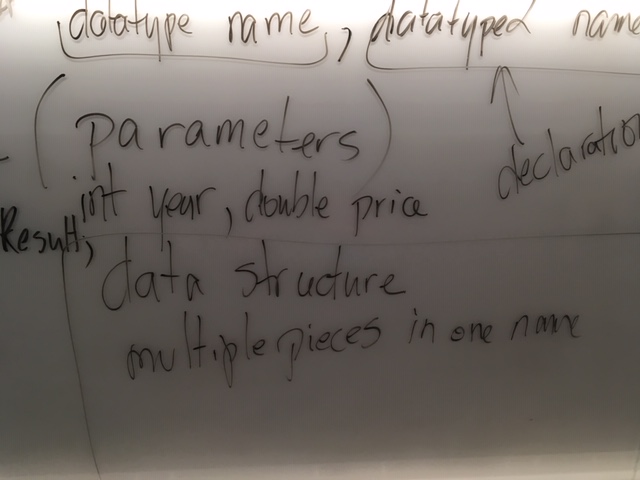 datatype name, datatype2 name
(parameters)
declaration
int year, double price
Result;
data structure
multiple pieces in one name